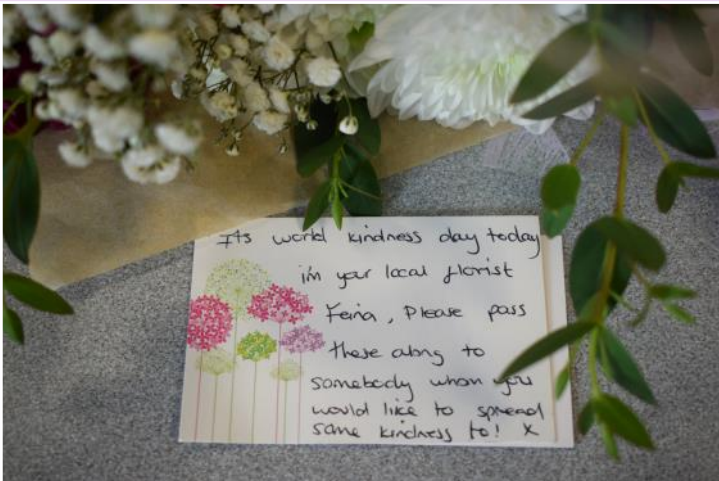 Its world kindness day today
im your local florist
Feina, Please pass
these along to
somebody whom you
would like to spread
some kindness to! X